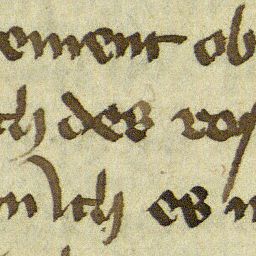 ement ob
ch des ros
n Ich es n